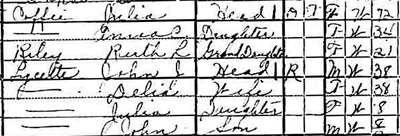 Coffie Julia Head 1 O F F W 72
— Emma S Daughter F W 34
Riley Ruth L GrandDaughter F W 21
Lycette John J Head 1 R M W 38
— Delia Wife F W 38
— Julia Daughter F W 8
— John Son M W